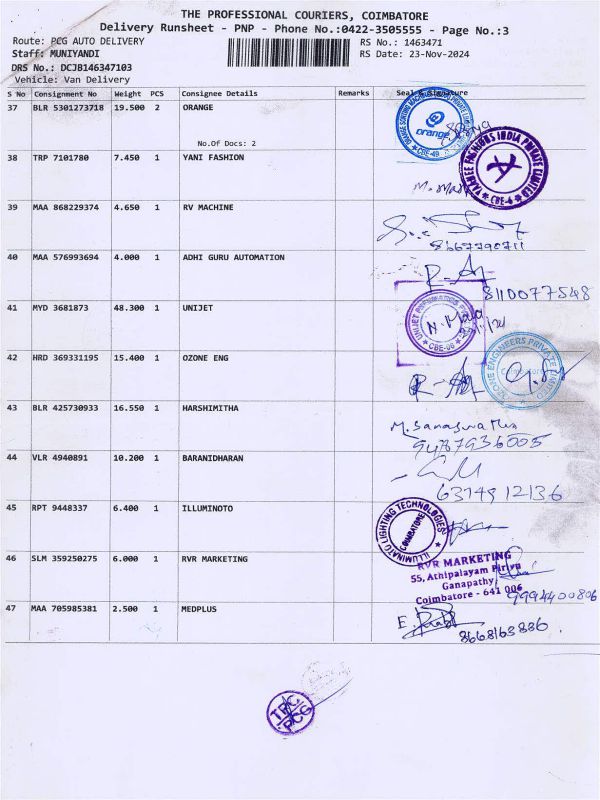 THE PROFESSIONAL COURIERS, COIMBATORE
Delivery Runsheet - PNP - Phone No.:0422-3505555 - Page No.:3
Route: PCG AUTO DELIVERY
RS No.: 1463471
Staff: MUNIYANDI
RS Date: 23-Nov-2024
DRS No.: DCJB146347103
Vehicle: Van Delivery
S No Consignment No Weight PCS Consignee Details Remarks Seal & Signature
37 BLR 5301273718 19.500 2 ORANGE
No.Of Docs: 2
orange
CBE-49
38 TRP 7101780 7.450 1 YANI FASHION
FASHIONS INDIA PRIVATE LIMITED
CBE-4
39 MAA 868229374 4.650 1 RV MACHINE
8667790711
40 MAA 576993694 4.000 1 ADHI GURU AUTOMATION
8110077548
41 MYD 3681873 48.300 1 UNIJET
42 HRD 369331195 15.400 1 OZONE ENG
OZONE ENGINEERS PRIVATE LIMITED
Coimbatore
43 BLR 425730933 16.550 1 HARSHIMITHA
9487936005
44 VLR 4940891 10.200 1 BARANIDHARAN
6374912136
45 RPT 9448337 6.400 1 ILLUMINOTO
ILLUMINATO LIGHTING TECHNOLOGIES
COIMBATORE
46 SLM 359250275 6.000 1 RVR MARKETING
RVR MARKETING
55, Athipalayam Pirivu
Ganapathy
Coimbatore - 641 006
9994400806
47 MAA 705985381 2.500 1 MEDPLUS
8668163886
TPC
PCG